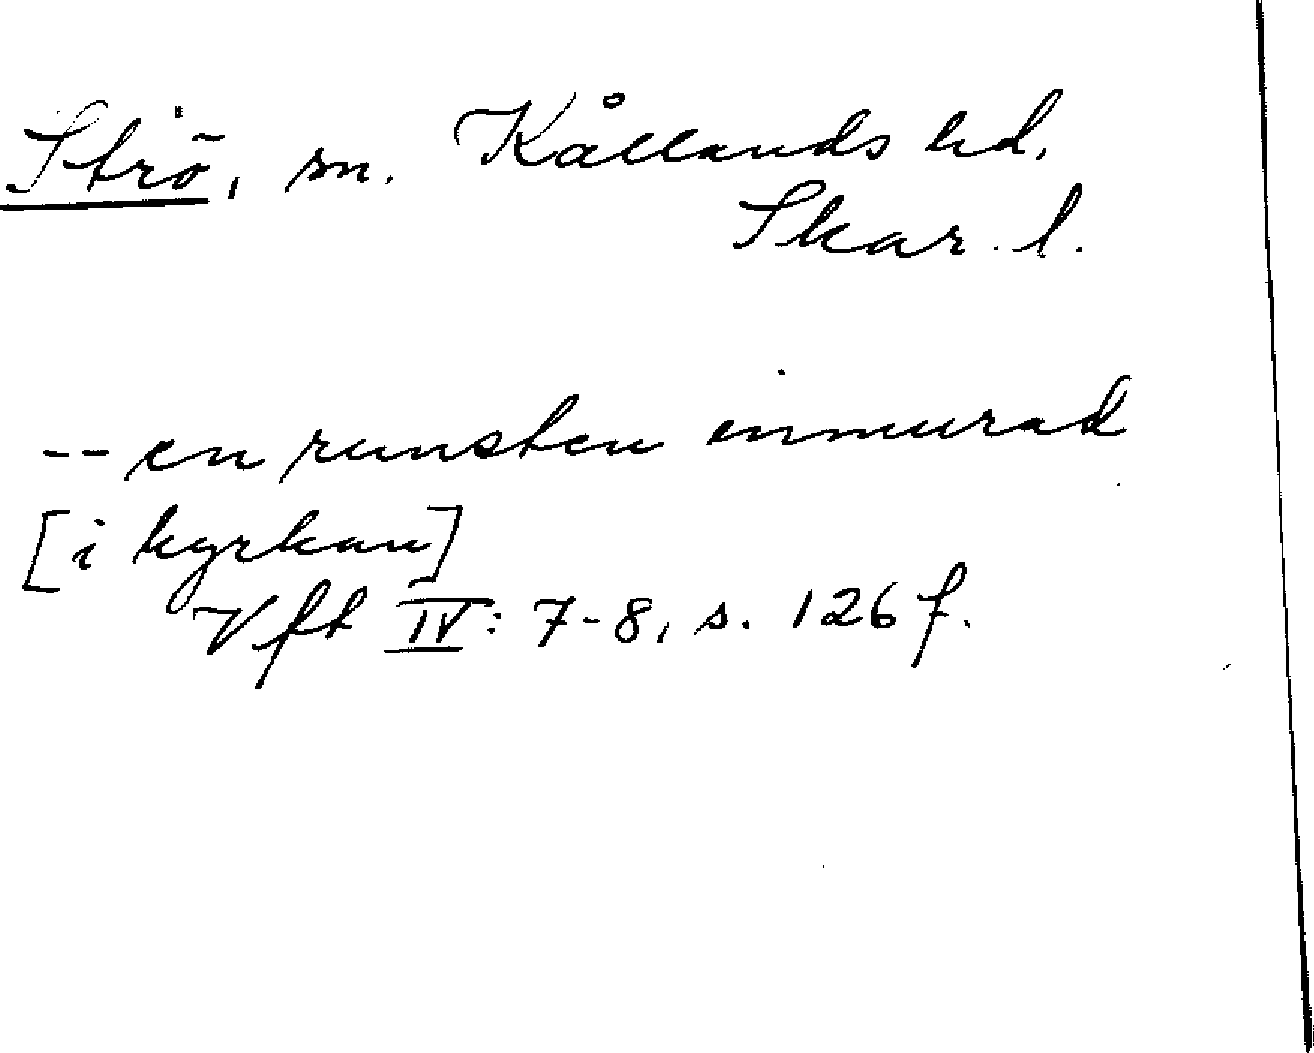 Strö, sn. Kållands hd.
Skar. l.
-- en runsten inmurad
[i kyrkan]
Vft IV: 7-8, s. 126 f.